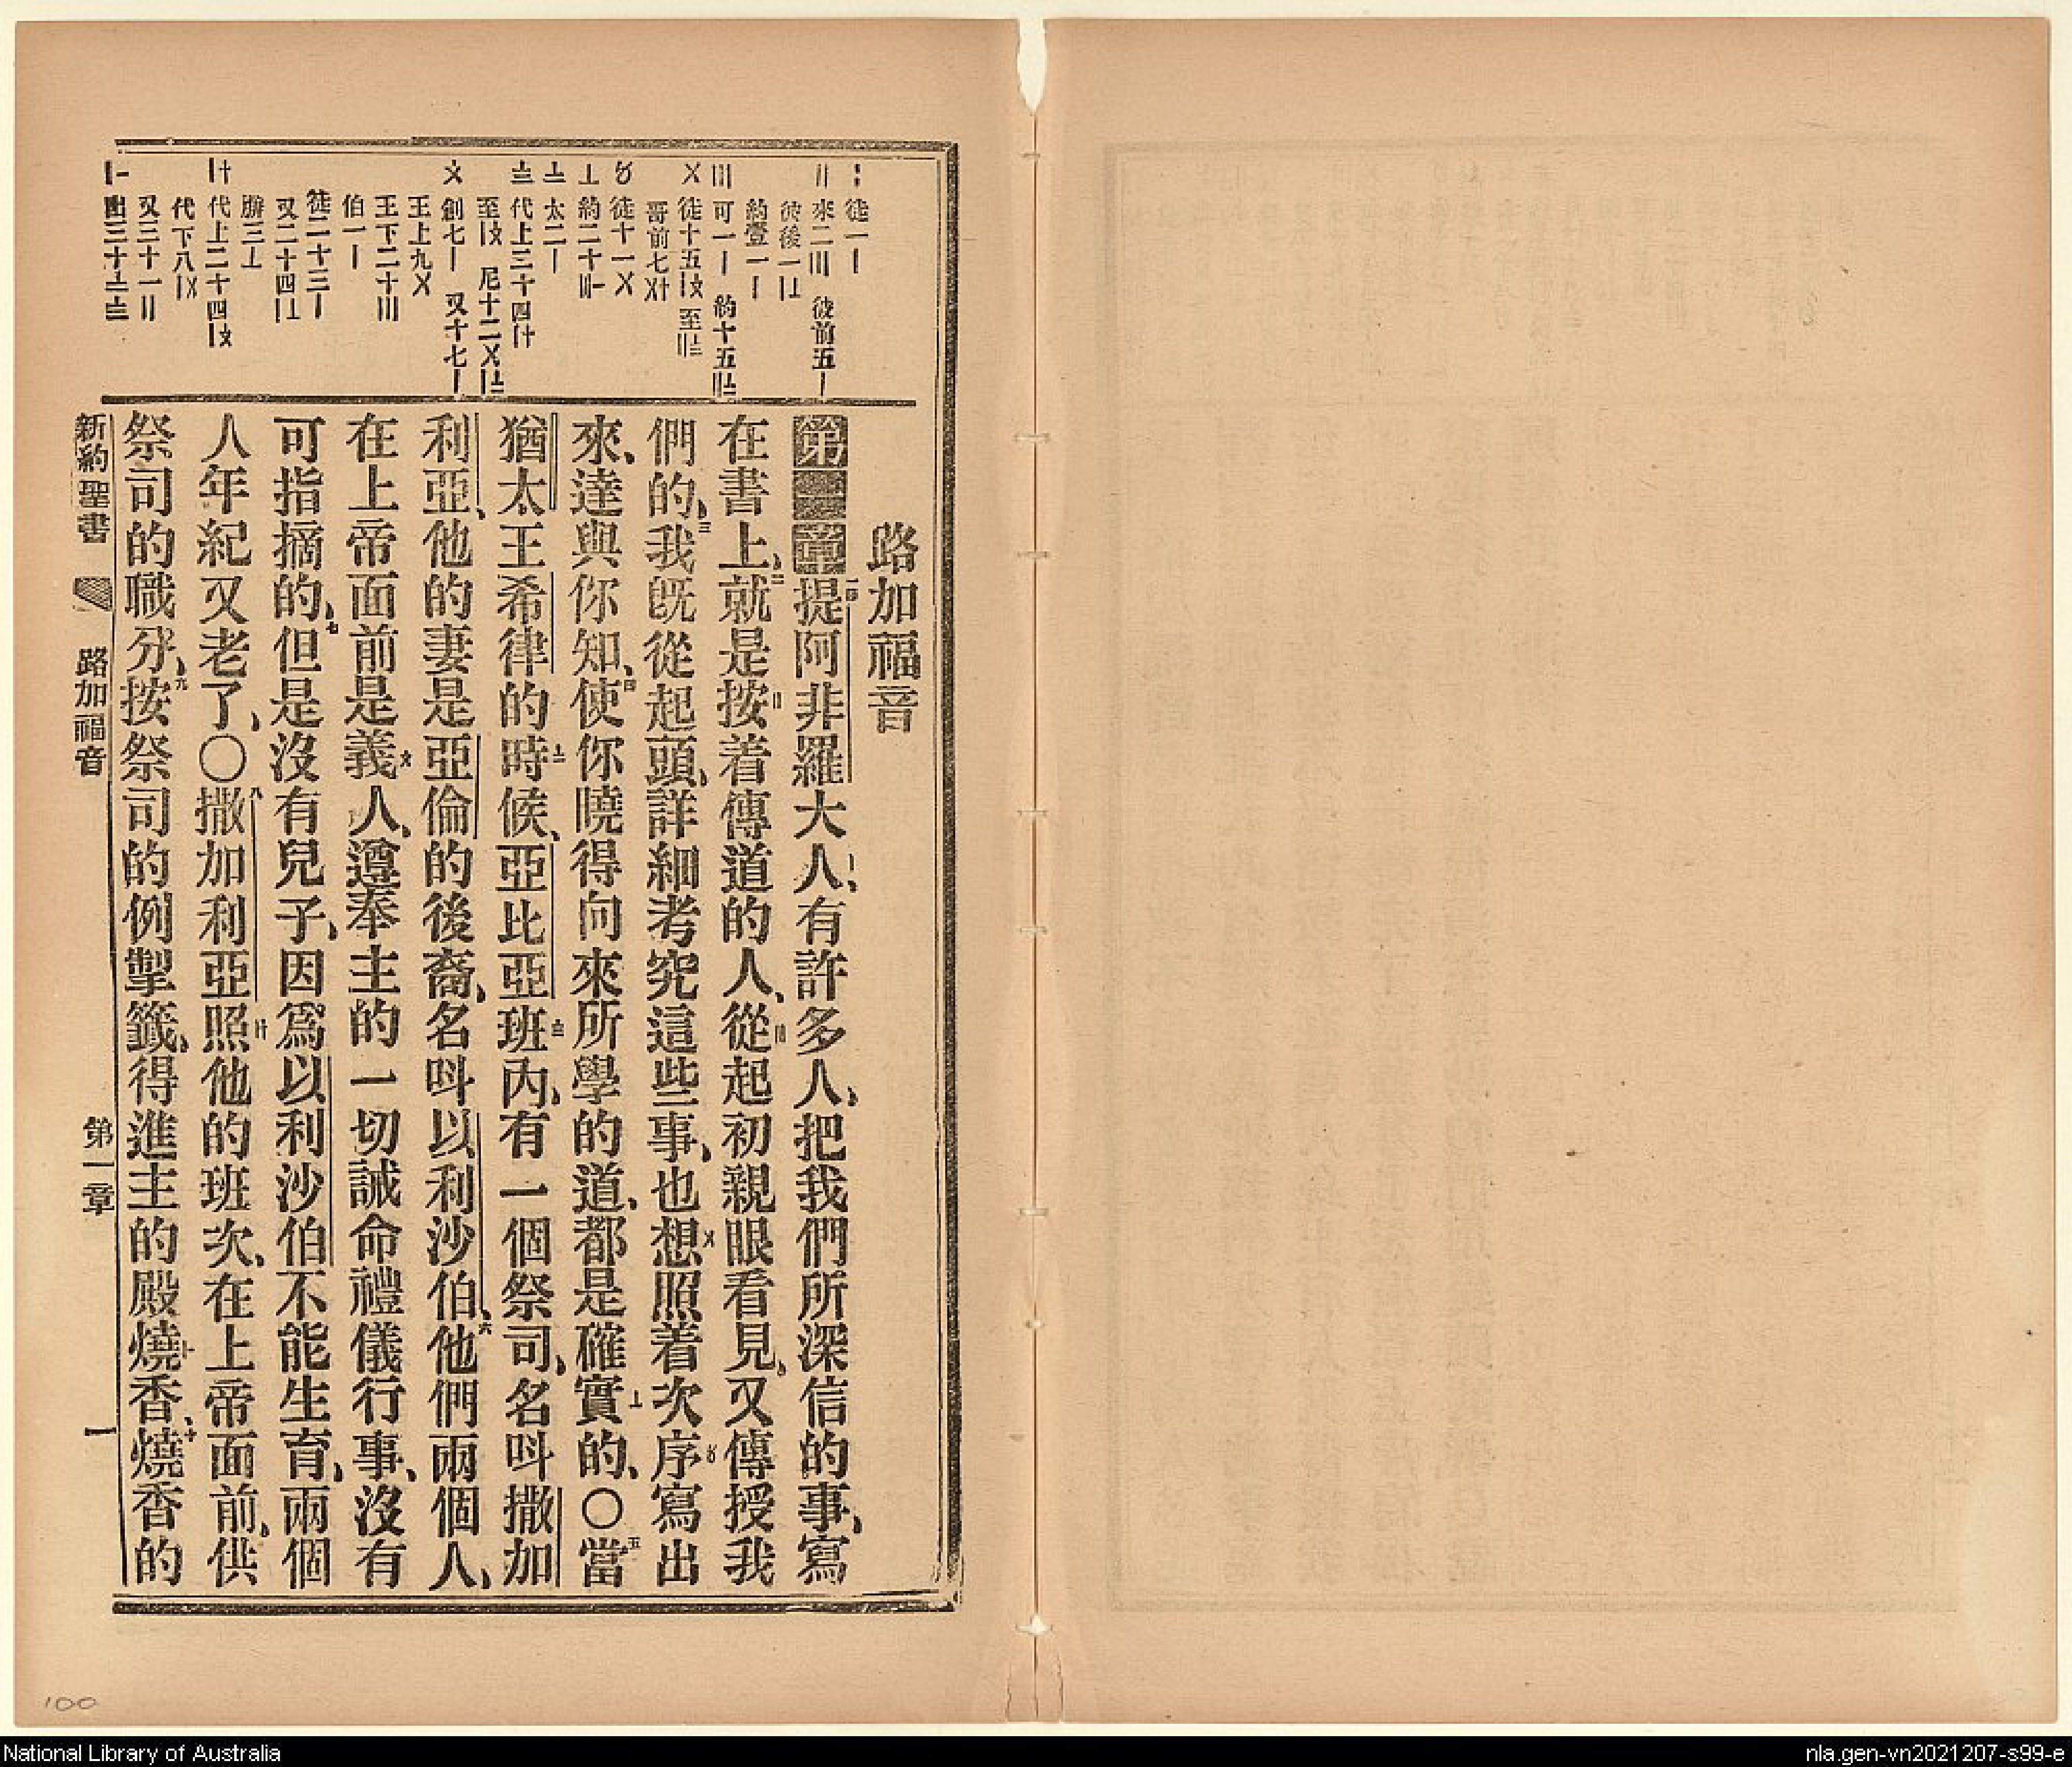 路加福音
第一章提阿非羅大人、有許多人、把我們所深信的事、寫
在書上、二就是按着傳道的人、從起初親眼看見、又傳授我
們的、三我旣從起頭、詳細考究這些事、也想照着次序寫出
來、達與你知、四使你曉得向來所學的道、都是確實的、〇五當
猶太王希律的時候、亞比亞班內、有一個祭司、名呌撒加
利亞、他的妻是亞倫的後裔、名呌以利沙伯、六他們兩個人、
在上帝面前是義人、遵奉主的一切誡命禮儀行事、沒有
可指摘的、七但是沒有兒子、因爲以利沙伯不能生育、兩個
人年紀又老了、〇八撒加利亞照他的班次、在上帝面前、供
祭司的職分、九按祭司的例掣籤、得進主的殿燒香、十燒香的
徒一〡
〢來二〣 彼前五〡
彼後一〡〦
約壹一〡
〣可一〡 約十五〢〧
〤徒十五〡〥至〢〨
哥前七〤十
〥徒十一〤
〦約二十〣〡
〧太二〡
〨代上二十四〡十
至〡〥 尼十二〤〡〧
〤創七〡 又十七〡
王上九〤
王下二十〣
伯一〡
徒二十三〡
又二十四〡〦
腓三〦
〡十代上二十四〡〥
代下八〡〤
又三十一〢
出三十〧〨
新約聖書 路加福音 第一章 一
100
National Library of Australia
nla.gen-vn2021207-s99-e